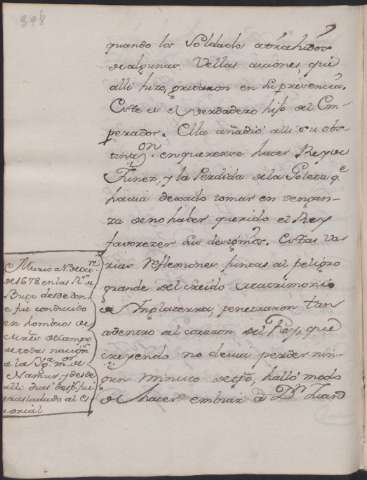 398
quando los Soldados atrahidos
de algunas bellas acciones, que
alli hizo, gritaron en su presencia,
Este es el verdadero hijo del Em-
perador. Ella añadió alli su obs-
tinaçon en quererse hacer Rey de
Tunez, y la Perdida de la Goleta, qe
havia dexado tomar en vengan-
za de no haber querido el Rey
favorecer sus designios. Estas va-
rias reflexiones juntas al peligro
grande del creido Matrimonio
de Inglaterra, penetraron tan
adentro al corazon del Rey, que
creyendo no devia perder nin-
gun minuto de tpo, halló modo
de hacer embiar a Dn Juan
Murio
de 1678 en las
de don-
e fue conducido
en hombros de
de Campo
de todas nacion
a la
Namur, y desde
alli fue
trasladado al Es-
corial